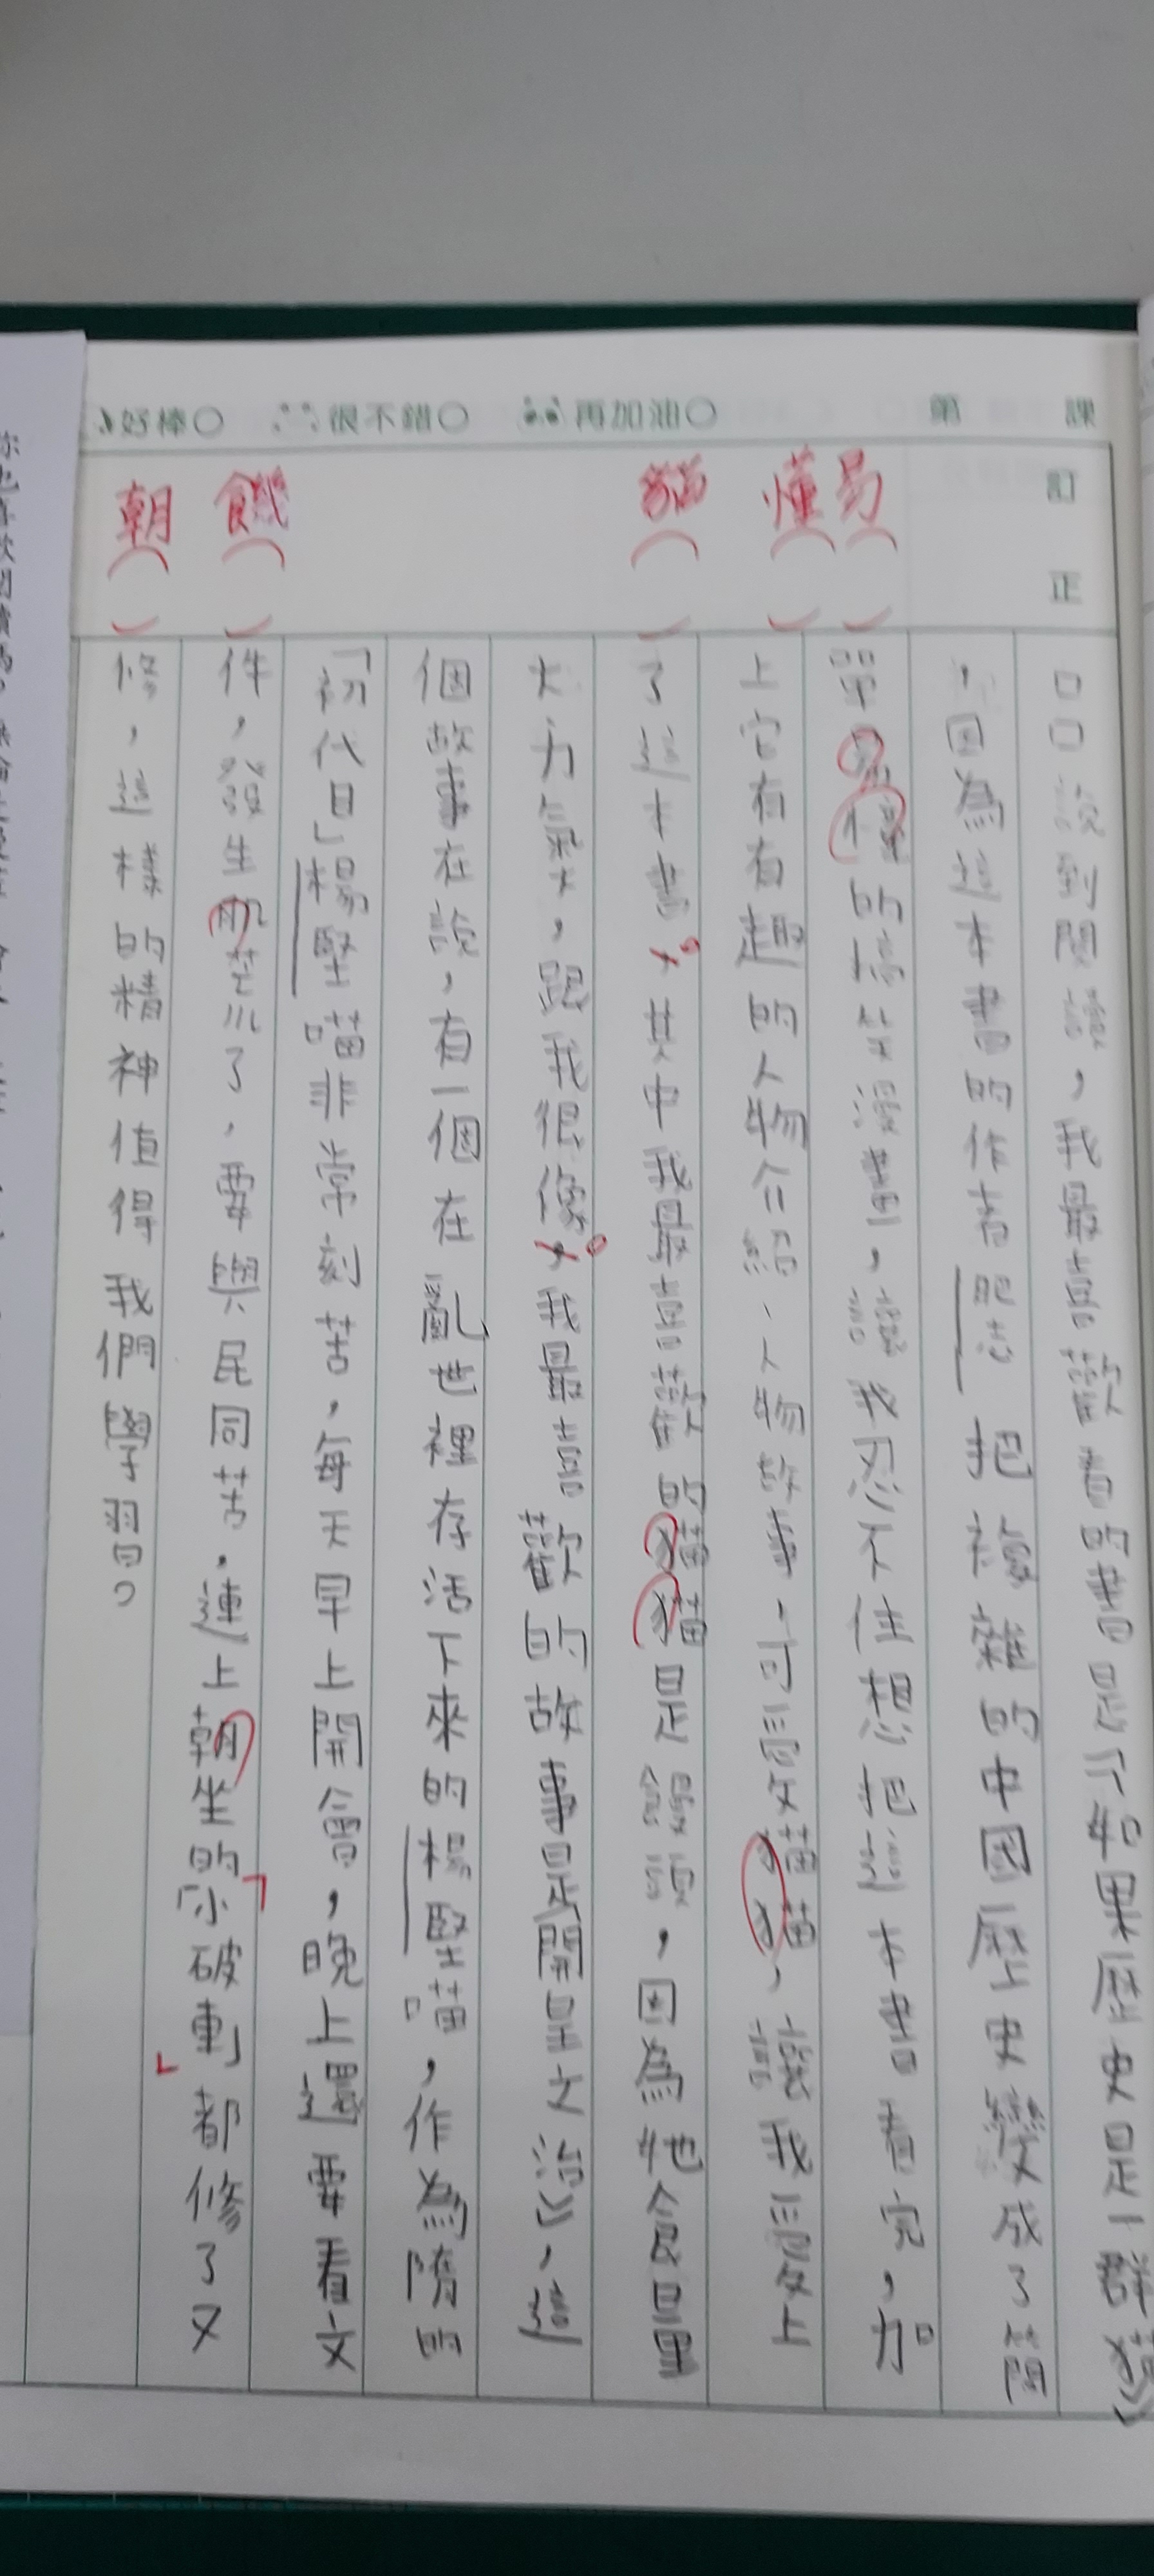 第　課
再加油○
很不錯○
好棒○
訂正
易
懂
貓
饑
朝
□□說到閱讀，我最喜歡看的書是《如果歷史是一群貓》
，因為這本書的作者肥志把複雜的中國歷史變成了簡
單易懂的搞笑漫畫，讓我忍不住想把這本書看完，加
上它有有趣的人物介紹、人物故事，可愛貓貓，讓我愛上
了這本書。其中我最喜歡的貓貓是饅頭，因為牠食量
大力氣大，跟我很像。我最喜歡的故事是開皇之治》，這
個故事在說，有一個在亂世裡存活下來的楊堅喵，作為隋的
「初代目」楊堅喵非常刻苦，每天早上開會，晚上還要看文
件，發生肌荒了，要與民同苦，連上朝坐的「小破車」都修了又
修，這樣的精神值得我們學習。